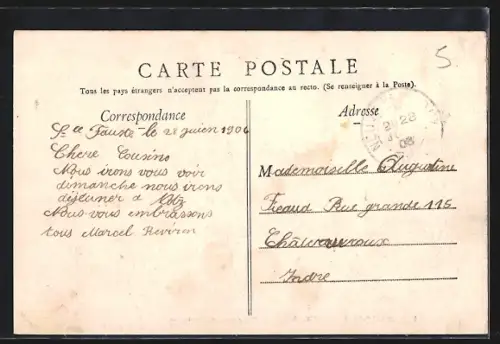 5
CARTE POSTALE
Tous les pays étrangers n'acceptent pas la correspondance au recto. (Se renseigner à la Poste).
Correspondance
Adresse
Ste Fauste le 28 juien 1906
Chere Cousins
Nous irons vous voir
dimanche nous irons
dejeuner a
Nous vous embrassons
tous Marcel
28
Mademoiselle Augustine
Rue grande 115
Châteauroux
Indre